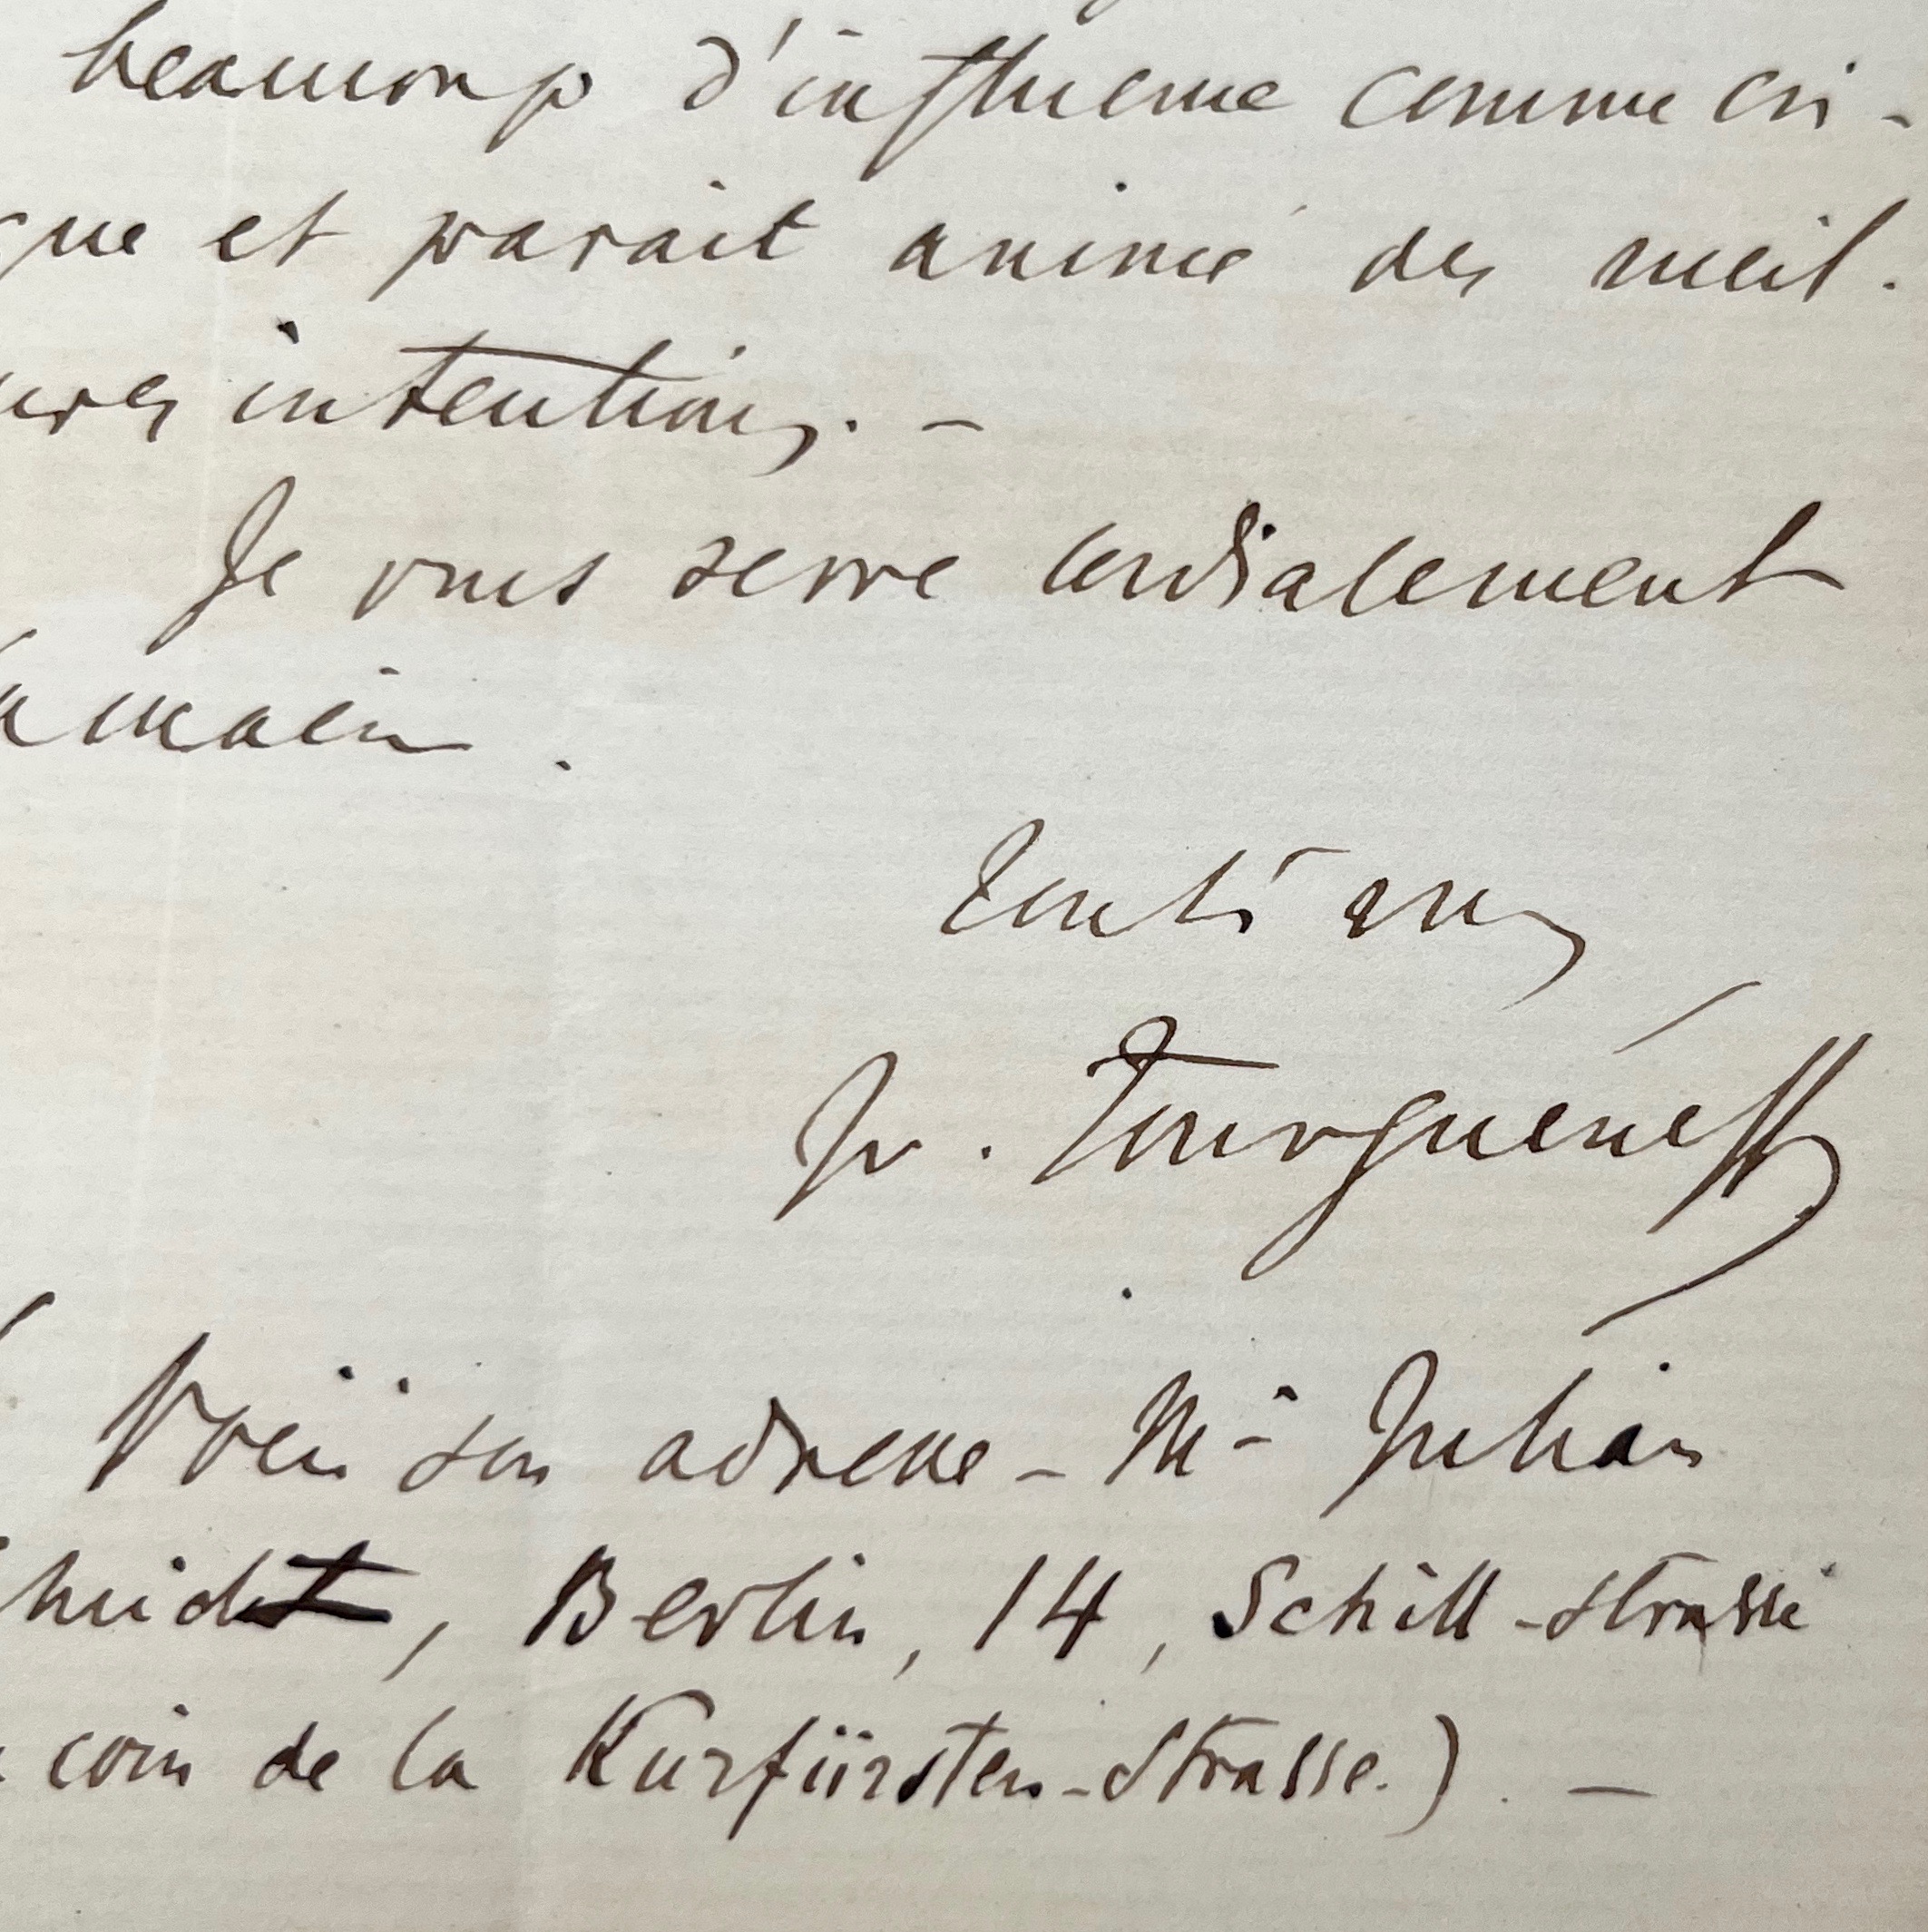 beaucoup d'influence comme cri-
que et parait animé des meil-
ures intentions. —
Je vous serre cordialement
la main.
Tout à vous
Iv. Tourguéneff
( Voici son adresse — Mr Julian
hmidt, Berlin, 14, Schill-Strasse
coin de la Kurfürsten-Strasse.). —